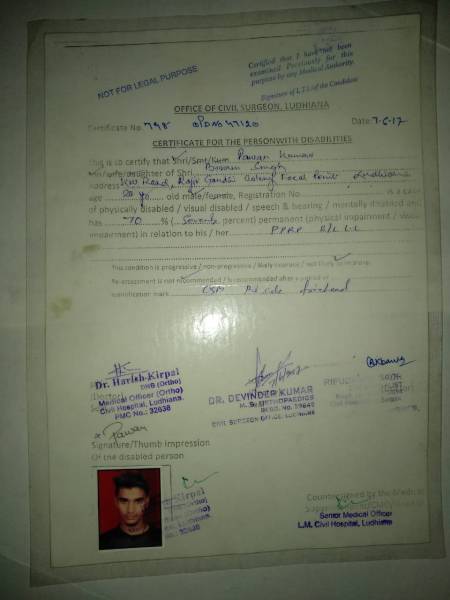 NOT FOR LEGAL PURPOSE
Certified that I have not been
examined Previously for this
purpose by any Medical Authority.
Signature of L.T.I. of the Candidate
OFFICE OF CIVIL SURGEON, LUDHIANA
Certificate No. 798 OPD No 47120 Date 7-6-17
CERTIFICATE FOR THE PERSONWITH DISABILITIES
This is so certify that Shri/Smt/Kum Pawan Kumar
son/wife/daughter of Shri Singh
Address Road, Rajiv Gandhi Colony Focal Point Ludhiana
age 20 yo old male/female, Registration No. is a case
of physically disabled / visual disabled / speech & hearing / mentally disabled and
has 70 % (Seventy percent) permanent (physical impairment / visual
impairment) in relation to his / her PPRP
This condition is progressive / non-progressive / likely to improve / not likely to improve.
Re-assessment is not recommended / is recommended after a period of
Identification mark side forehead
Dr. Harish Kirpal
DNB (Ortho)
Medical Officer (Ortho)
Civil Hospital, Ludhiana.
PMC No.: 32638
DR. DEVINDER KUMAR
M.S. ORTHOPAEDICS
REGD. No. 29649
CIVIL SURGEON OFFICE, LUDHIANA
Pawan
Signature/Thumb impression
Of the disabled person
Kirpal
(Ortho)
32638
Countersigned by the Medical
Senior Medical Officer
L.M. Civil Hospital, Ludhiana